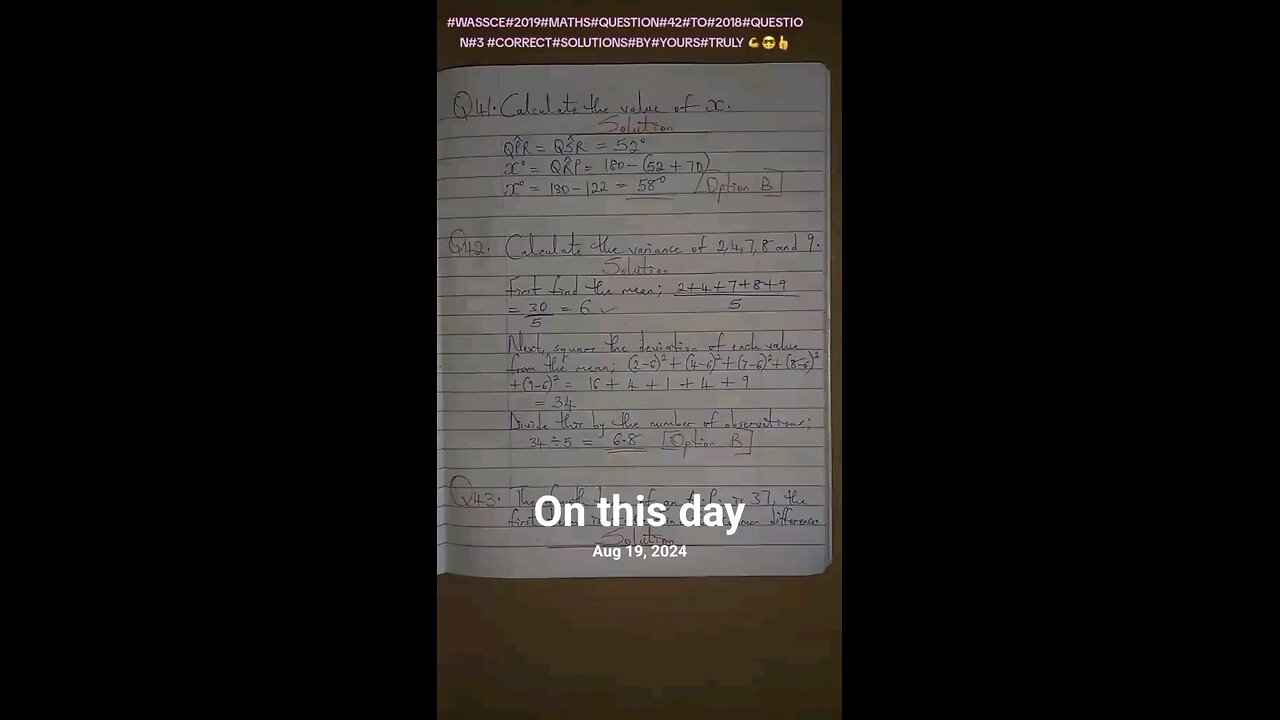 #WASSCE#2019#MATHS#QUESTION#42#TO#2018#QUESTIO
N#3 #CORRECT#SOLUTIONS#BY#YOURS#TRULY 💪😎👍
Q41. Calculate the value of x.
Solution
QP̂R = QŜR = 52°
x° = QR̂P = 180 - (52 + 70)
x° = 180 - 122 = 58° Option B
Q42. Calculate the variance of 2,4,7,8 and 9.
Solution
First find the mean; 2+4+7+8+9
5
= 30/5 = 6 ✓
Next, square the deviation of each value
from the mean; (2-6)² + (4-6)² + (7-6)² + (8-6)²
+ (9-6)² = 16 + 4 + 1 + 4 + 9
= 34
Divide this by the number of observations;
34 ÷ 5 = 6.8 Option B
Q43. The is 37, the
first difference.
Solution
On this day
Aug 19, 2024